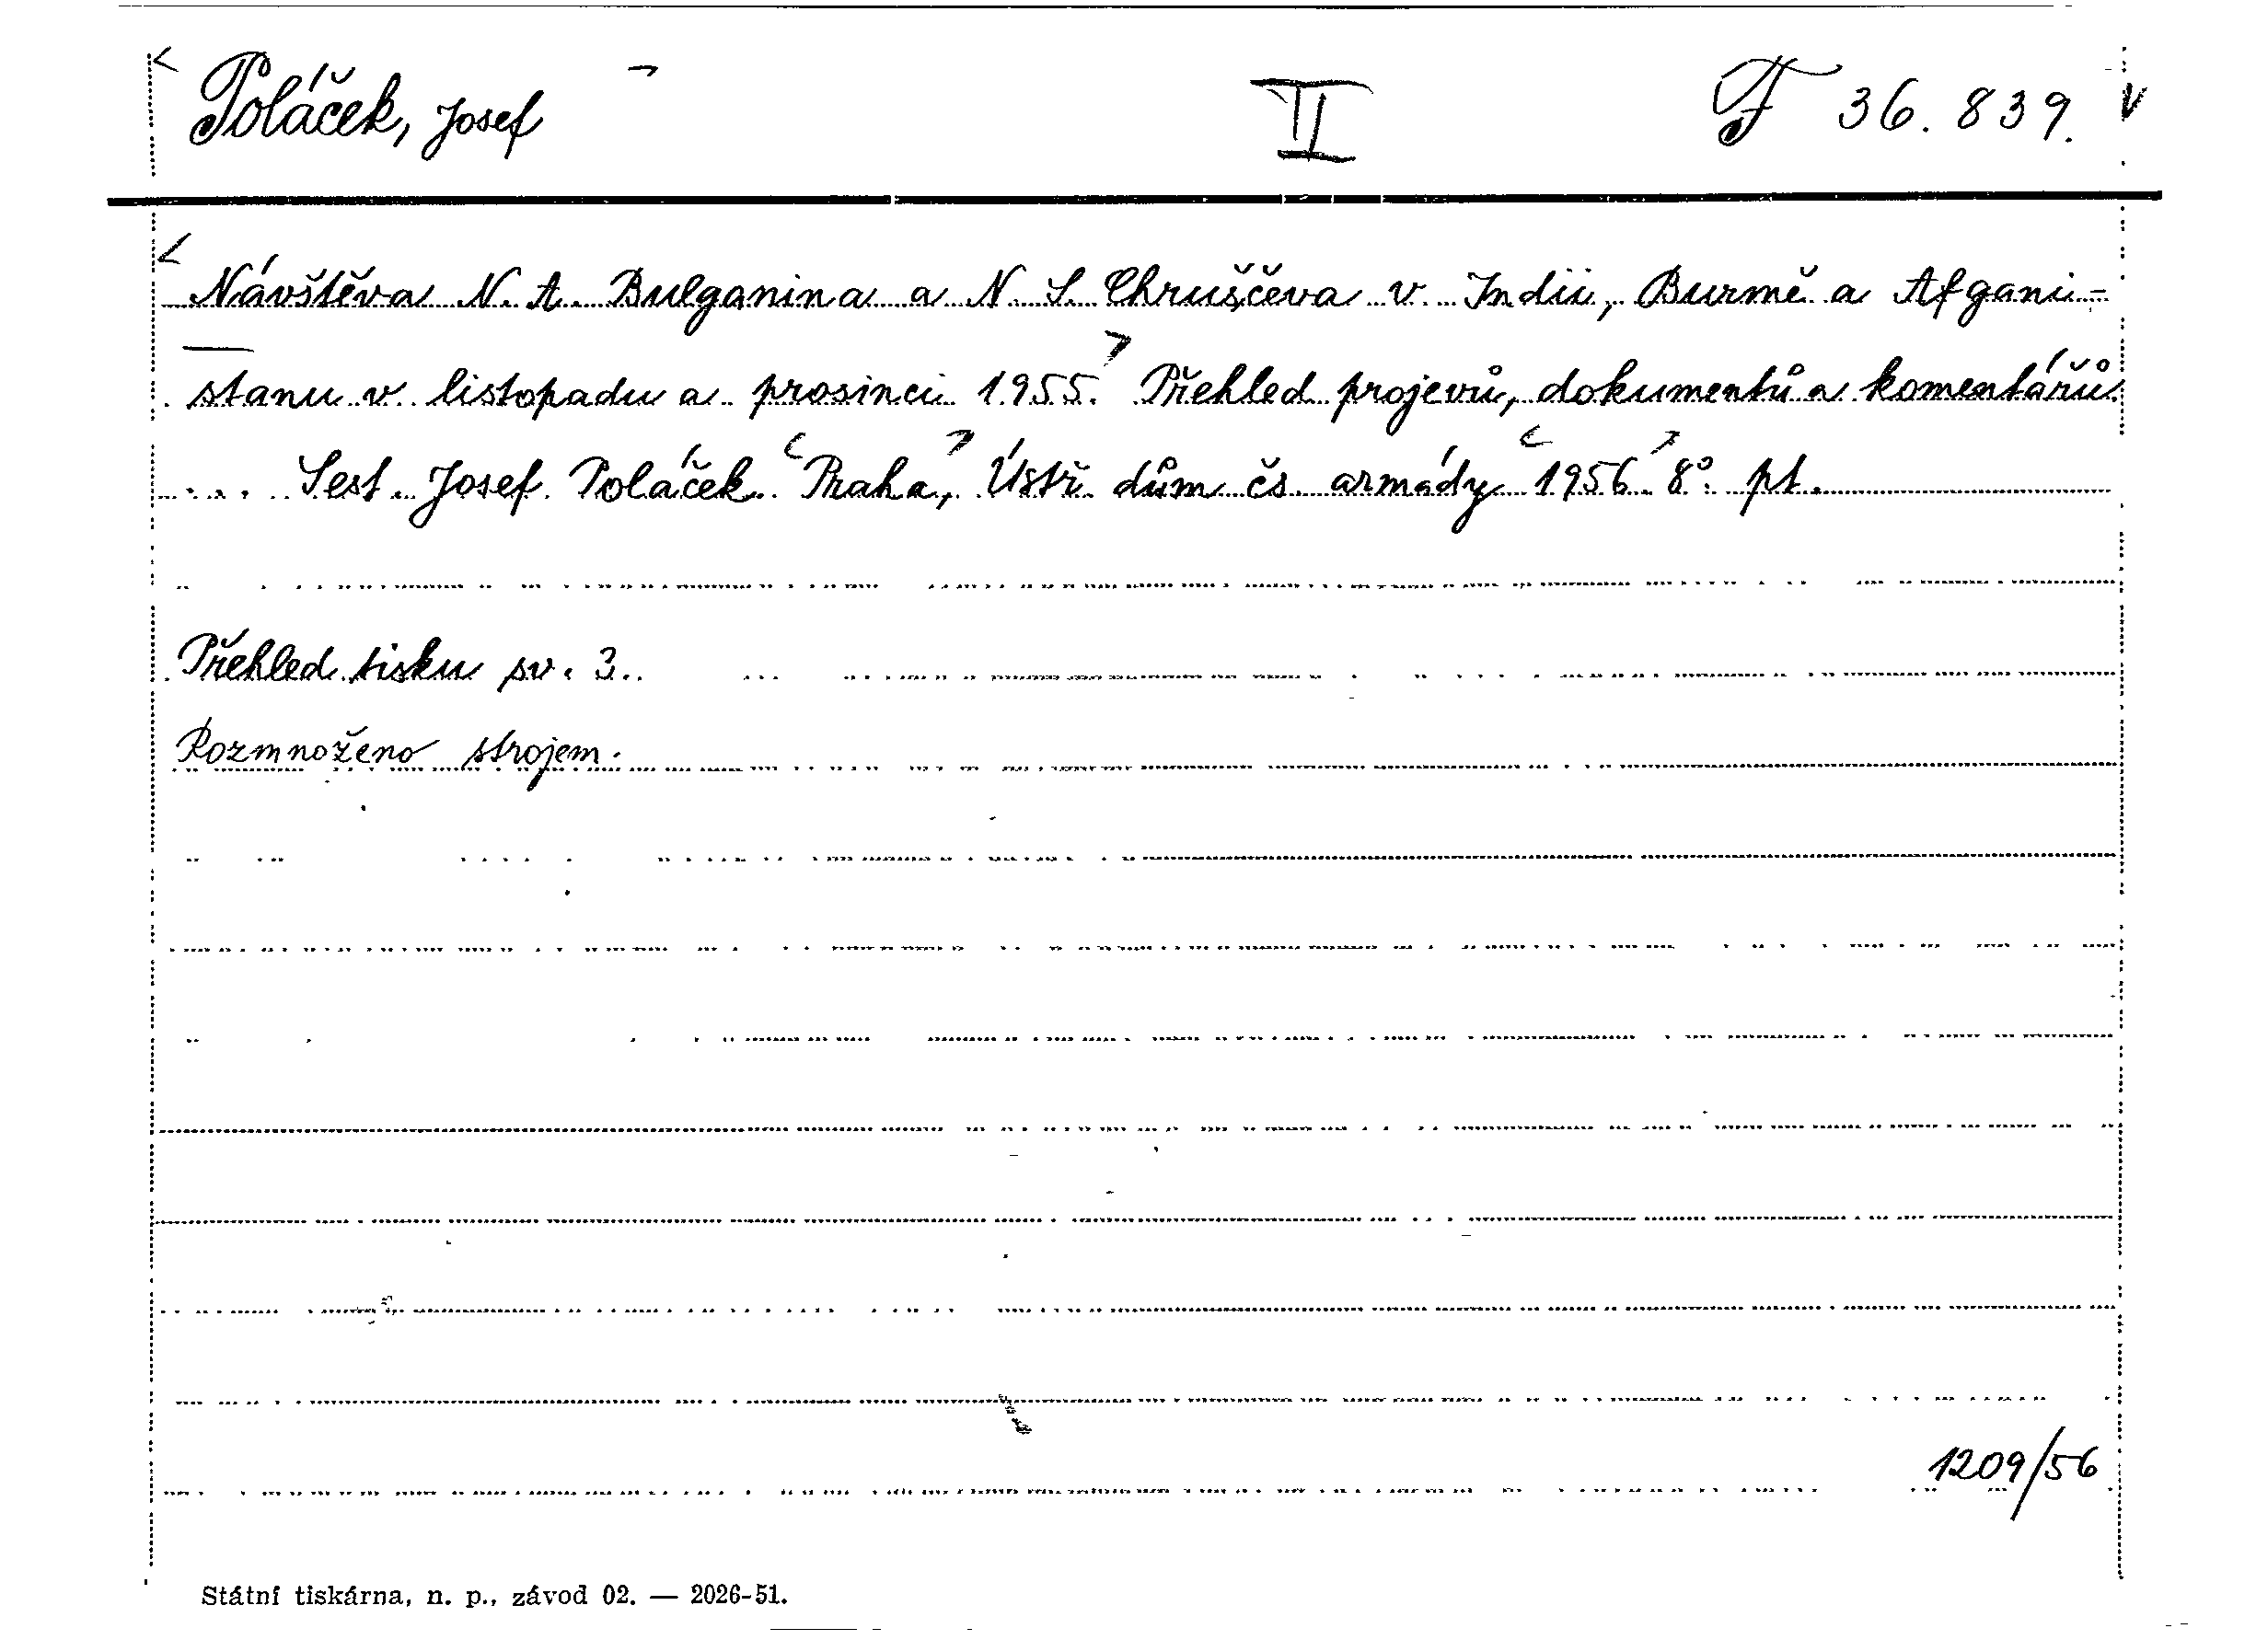 Poláček, Josef II F 36.839.
Návštěva N. A. Bulganina a N. S. Chruščeva v Indii, Burmě a Afgani-
stanu v listopadu a prosinci 1955. Přehled projevů, dokumentů a komentářů.
Sest. Josef Poláček. Praha, Ústř. dům čs. armády 1956. 8°. pt.
Přehled tisku sv. 3.
Rozmnoženo strojem.
1209/56
Státní tiskárna, n. p., závod 02. — 2026-51.